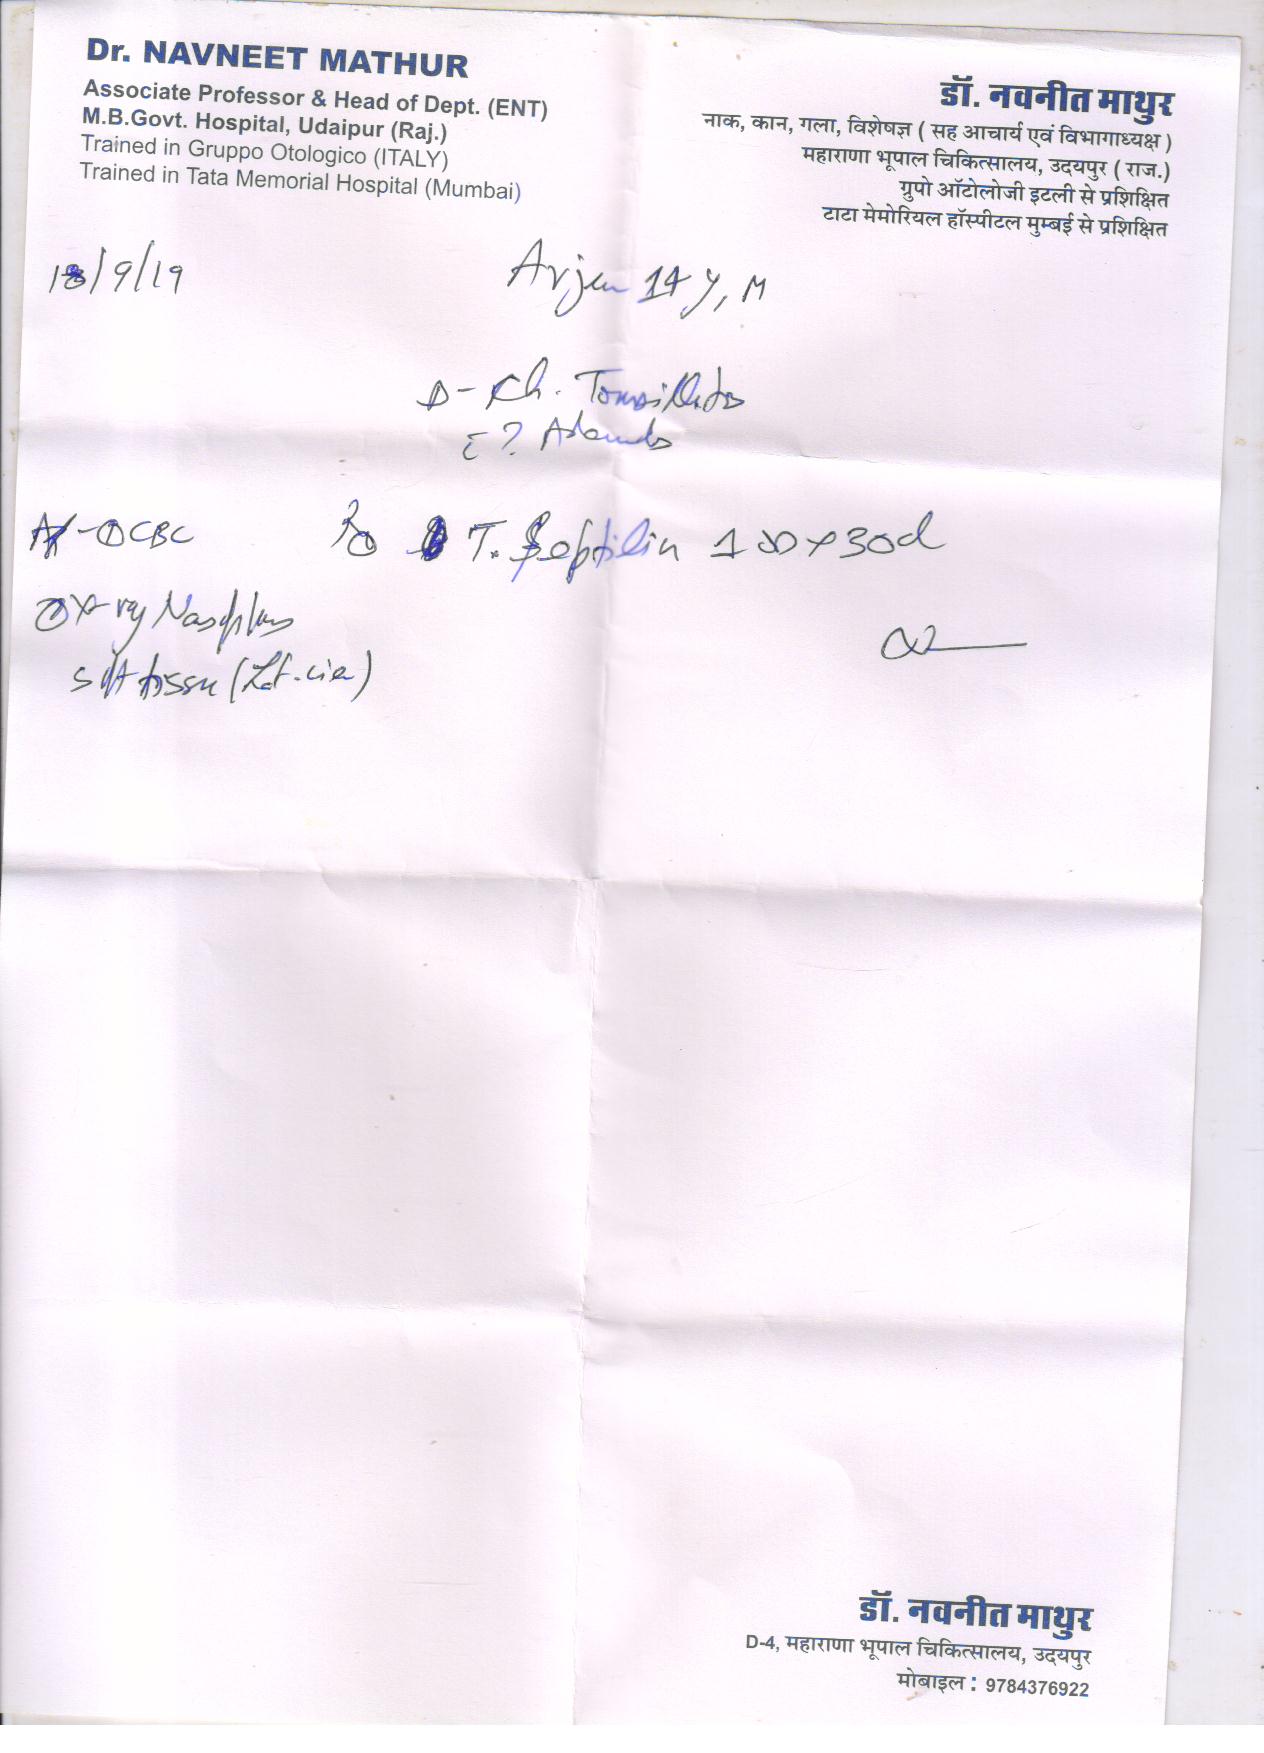 Dr. NAVNEET MATHUR
Associate Professor & Head of Dept. (ENT)
M.B.Govt. Hospital, Udaipur (Raj.)
Trained in Gruppo Otologico (ITALY)
Trained in Tata Memorial Hospital (Mumbai)
डॉ. नवनीत माथुर
नाक, कान, गला, विशेषज्ञ ( सह आचार्य एवं विभागाध्यक्ष )
महाराणा भूपाल चिकित्सालय, उदयपुर ( राज.)
ग्रुपो ऑटोलोजी इटली से प्रशिक्षित
टाटा मेमोरियल हॉस्पीटल मुम्बई से प्रशिक्षित
18/9/19
Arjun 14 y, M
D- Ch. Tonsillitis
c̄ ? Adenoids
① CBC
T. Septilin 1 BD x 30d
② X-ray Nasophx
soft tissue (Lat. view)
डॉ. नवनीत माथुर
D-4, महाराणा भूपाल चिकित्सालय, उदयपुर
मोबाइल : 9784376922